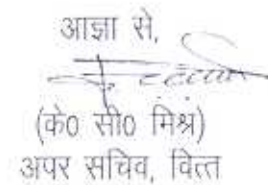 आज्ञा से,
(के0 सी0 मिश्र)
अपर सचिव, वित्त